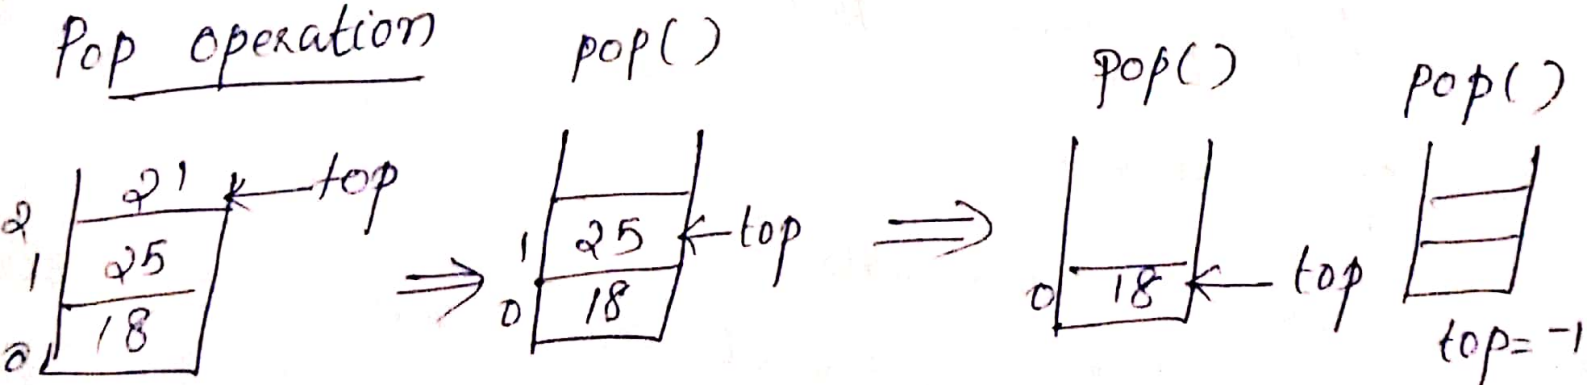 Pop operation
pop()
pop()
pop()
2
21
top
1
25
0
18
1
25
top
0
18
0
18
top
top= -1